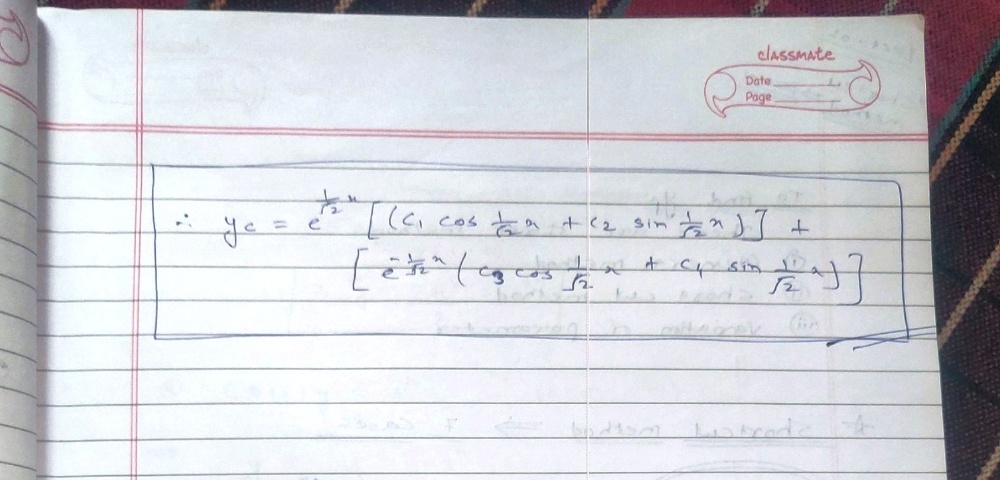 classmate
Date
Page
∴ yc = e^{\frac{1}{\sqrt{2}}x} [(c1 cos \frac{1}{\sqrt{2}}x + c2 sin \frac{1}{\sqrt{2}}x)] +
[e^{-\frac{1}{\sqrt{2}}x} (c3 cos \frac{1}{\sqrt{2}}x + c4 sin \frac{1}{\sqrt{2}}x)]